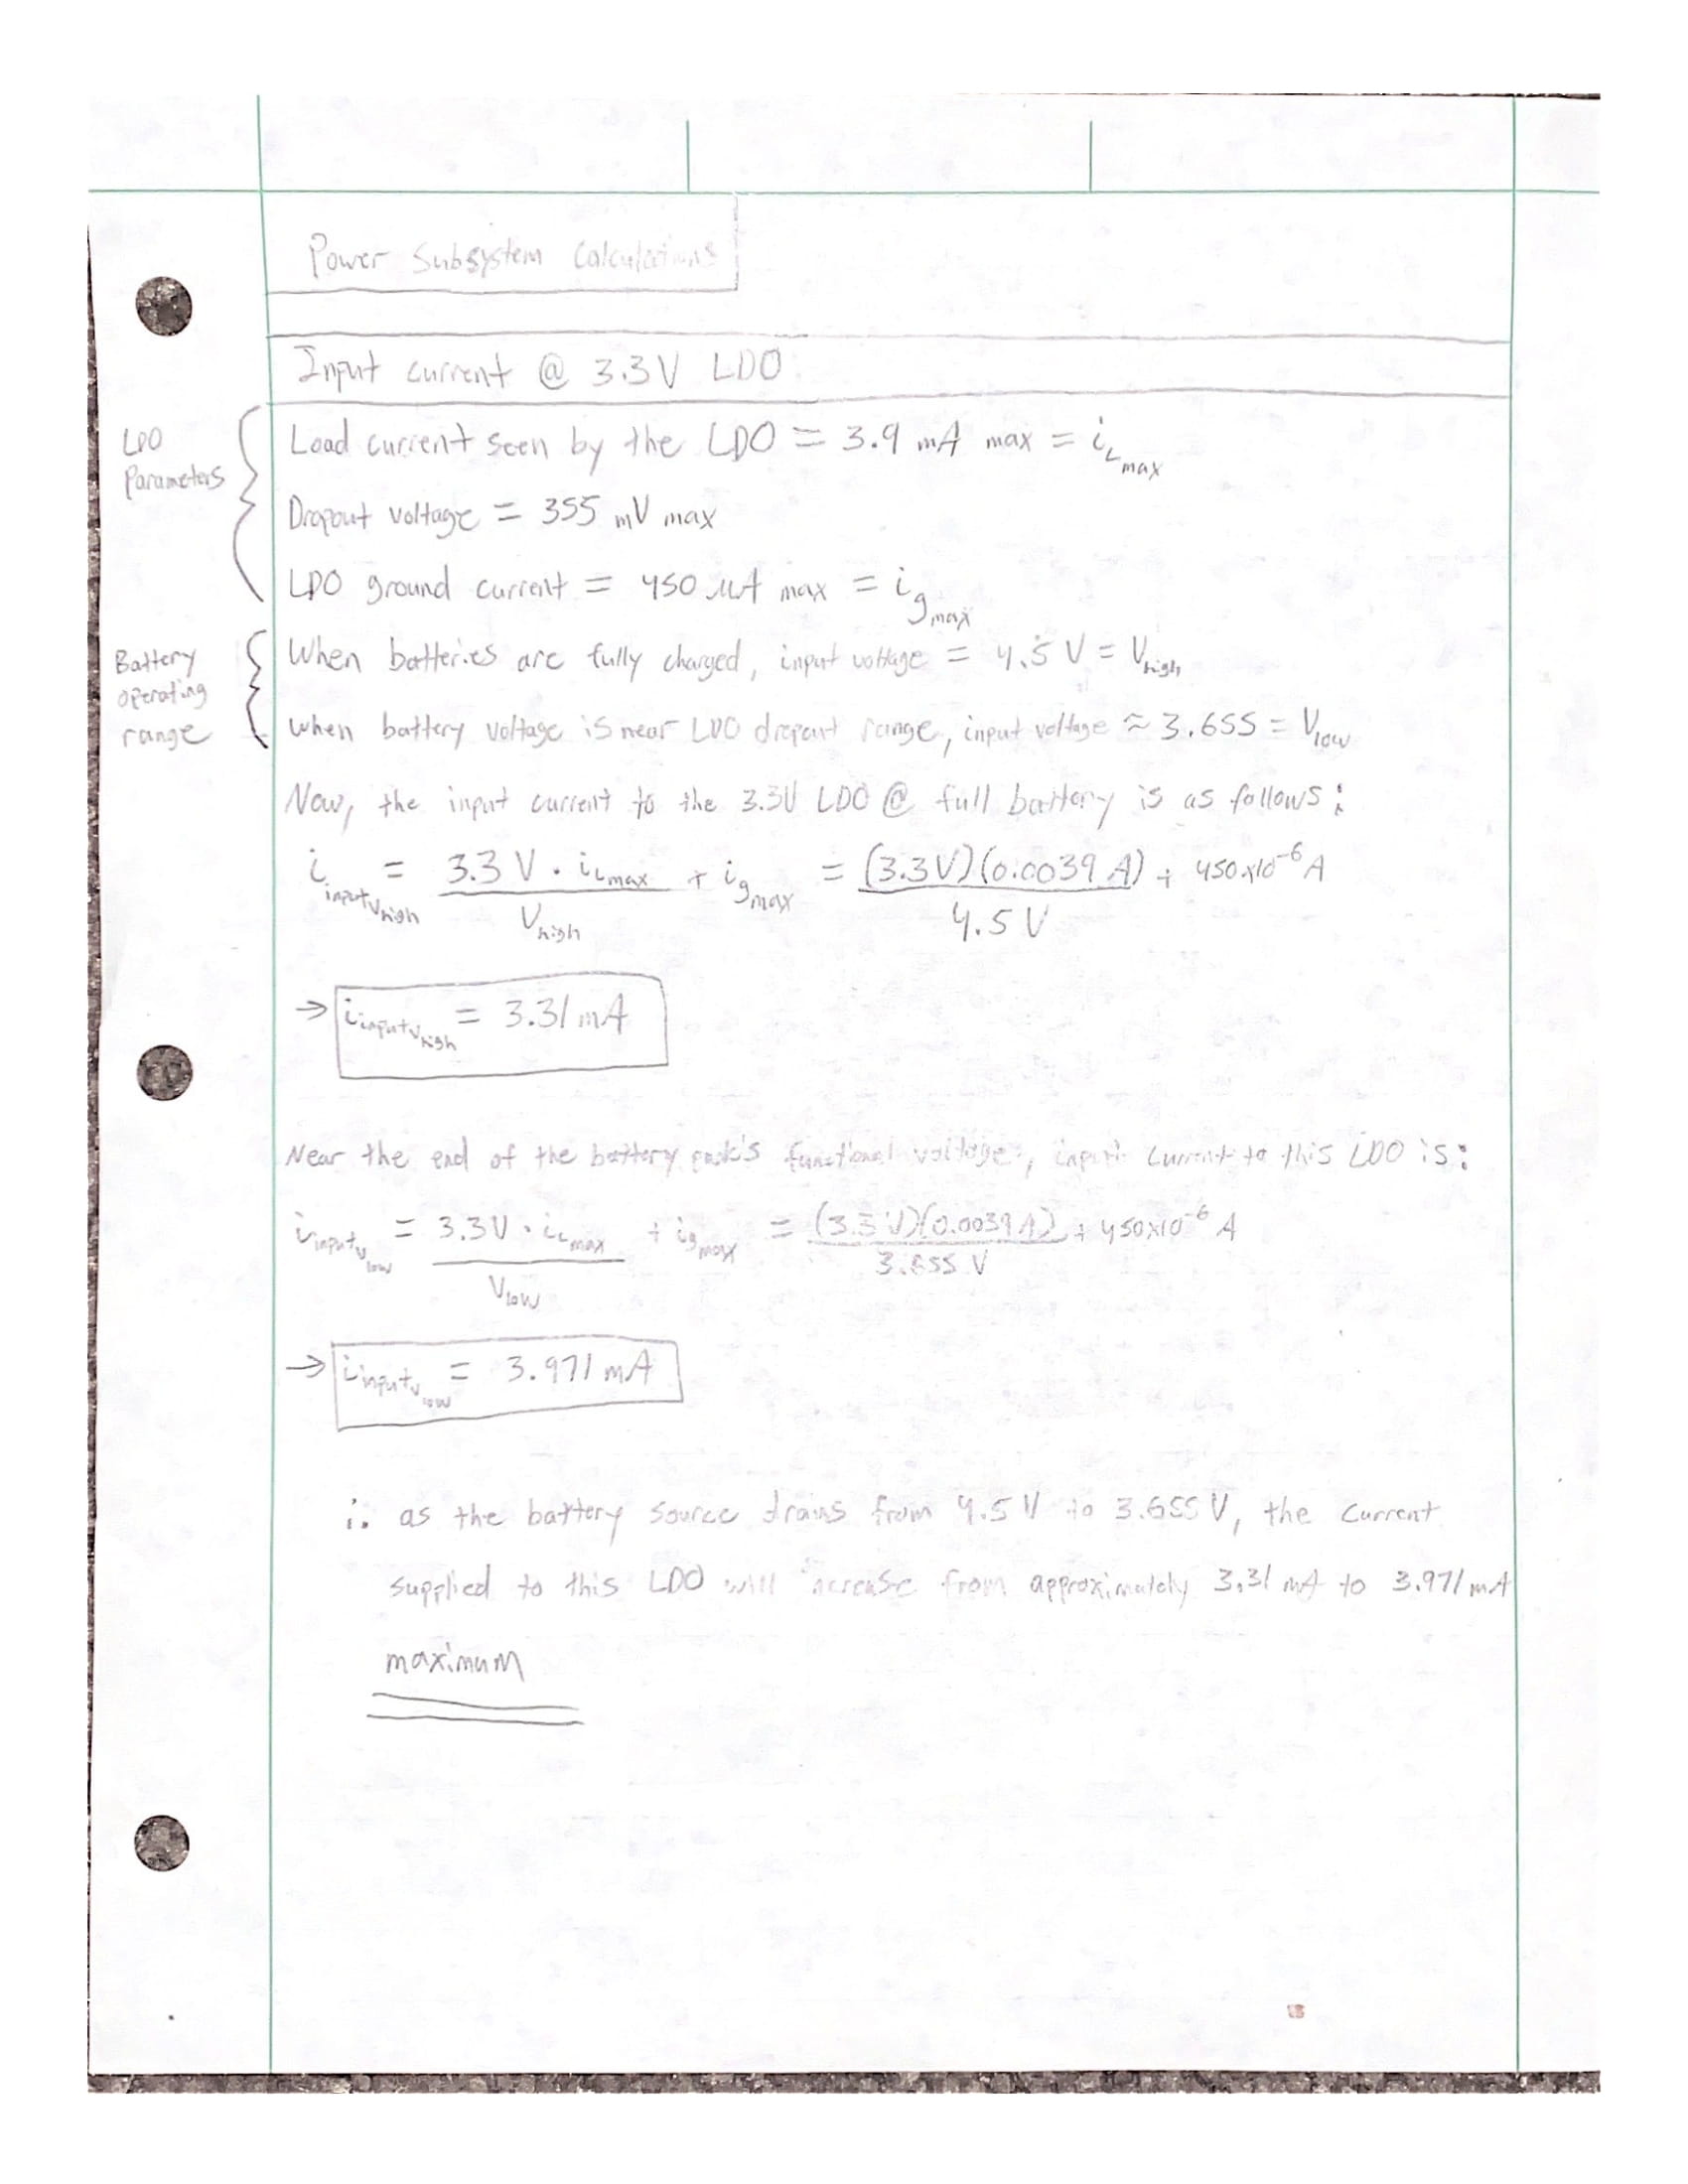 Power Subsystem Calculations
Input current @ 3.3V LDO
LDO Parameters
Load current seen by the LDO = 3.9 mA max = i_Lmax
Dropout voltage = 355 mV max
LDO ground current = 450 µA max = i_gmax
Battery operating range
When batteries are fully charged, input voltage = 4.5 V = V_high
When battery voltage is near LDO dropout range, input voltage ≈ 3.655 = V_low
Now, the input current to the 3.3V LDO @ full battery is as follows:
i_inputVhigh = (3.3 V · i_Lmax) / V_high + i_gmax = (3.3V)(0.0039 A) / 4.5 V + 450x10^-6 A
→ i_inputVhigh = 3.31 mA
Near the end of the battery pack's functional voltage, input current to this LDO is:
i_inputVlow = (3.3V · i_Lmax) / V_low + i_gmax = (3.3 V)(0.0039 A) / 3.655 V + 450x10^-6 A
→ i_inputVlow = 3.971 mA
∴ as the battery source drains from 4.5 V to 3.655 V, the current
supplied to this LDO will increase from approximately 3.31 mA to 3.971 mA
maximum